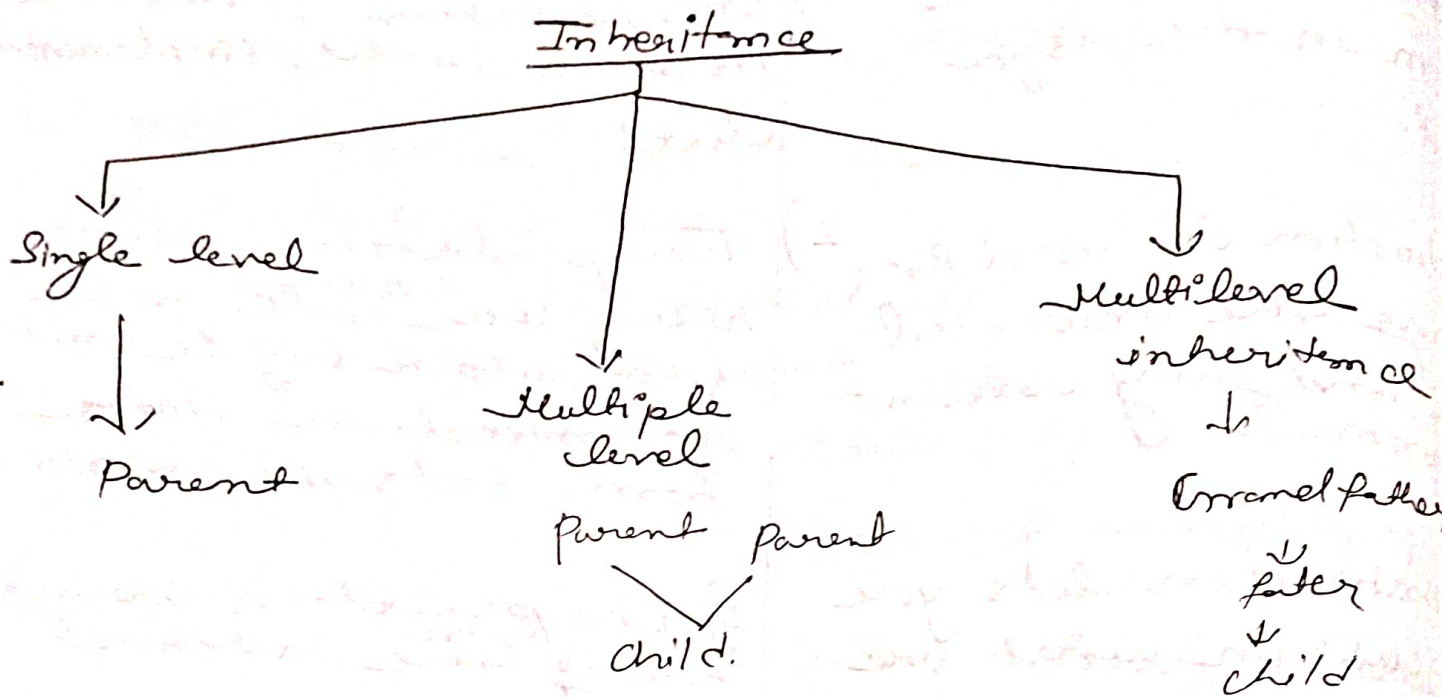 Inheritance
Single level
Parent
Multiple
level
Parent Parent
Child.
Multilevel
inheritance
Grand father
fater
child